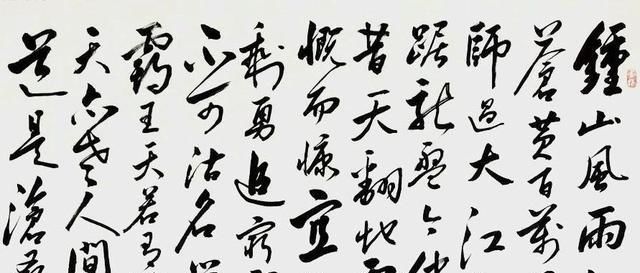 鍾山風雨
蒼黄百萬
師過大江
踞龍盤今
昔天翻地
慨而慷宜
剩勇追窮
不可沽名學
霸王天若有
天亦老人間
道是滄桑